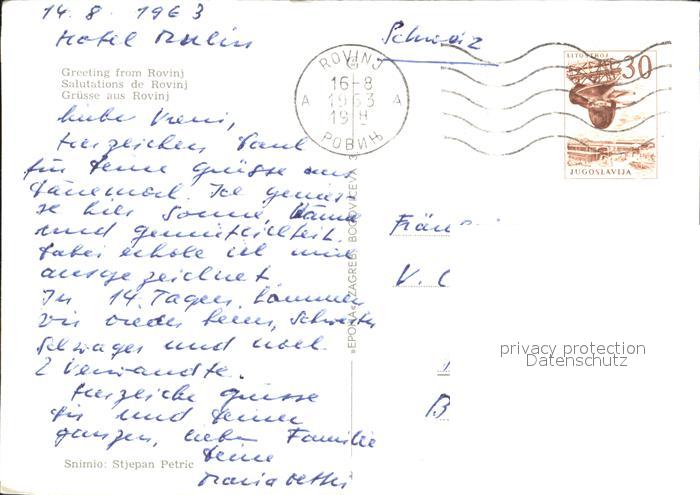 14. 8. 1963
Hotel Mulin
Schweiz
Greeting from Rovinj
Salutations de Rovinj
Grüsse aus Rovinj
ROVINJ
16-8
A 1963 A
19 H
РОВИЊ
LITOSTROJ
30
JUGOSLAVIJA
liebe Vreni,
herzlichen Dank
für deine grüsse aus
dänemark. Ich genies-
se hier Sonne,
und gemütlichkeit.
dabei erhole ich mich
ausgezeichnet
In 14. Tagen kommen
wir wieder heim, Schwester
Schwager und noch
2 Verwandte.
herzliche grüsse
dir und deiner
ganzen, lieben Familie
deine
»EPOHA« ZAGREB, BOGOVIĆEVA 3
Fräu
V. C
B
privacy protection
Datenschutz
Snimio: Stjepan Petric